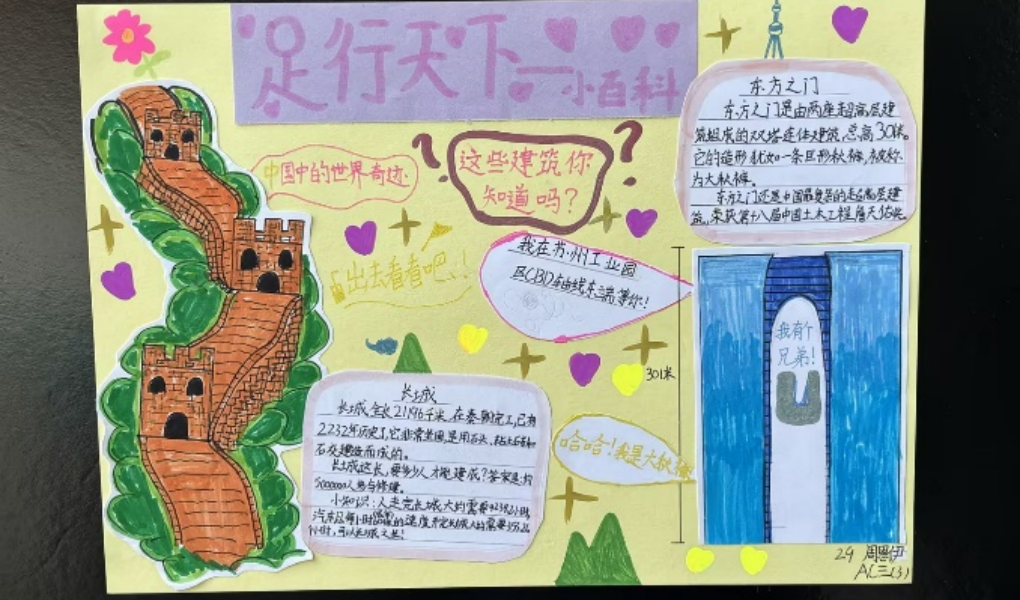 足行天下—小百科
中国中的世界奇迹
这些建筑你
知道吗?
出去看看吧!
东方之门
东方之门是由两座超高层建
筑组成的双塔连体建筑,总高301米。
它的造形犹如一条巨形秋裤,被称
为大秋裤。
东方之门还是中国最复杂的超高层建
筑,荣获第十八届中国土木工程詹天佑奖
我在苏州工业园
区CBD轴线东端等你!
我有个
兄弟!
301米
哈哈!我是大秋裤
长城
长城全长21196千米,在秦朝完工,已有
2232年历史了,它非常坚固,是用石头,
石灰建造而成的。
长城这长,要多少人才能建成?答案是:约
5000000人参与修建。
小知识:人走完长城大约需要
汽车以每小时的速度开完长城大约需要
小时,可以
29 周思伊
三(3)